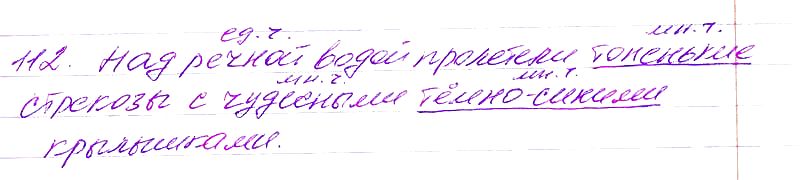 ед.ч. мн.ч.
112. Над речной водой пролетели тоненькие
мн.ч. мн.ч.
стрекозы с чудесными тёмно-синими
крылышками.